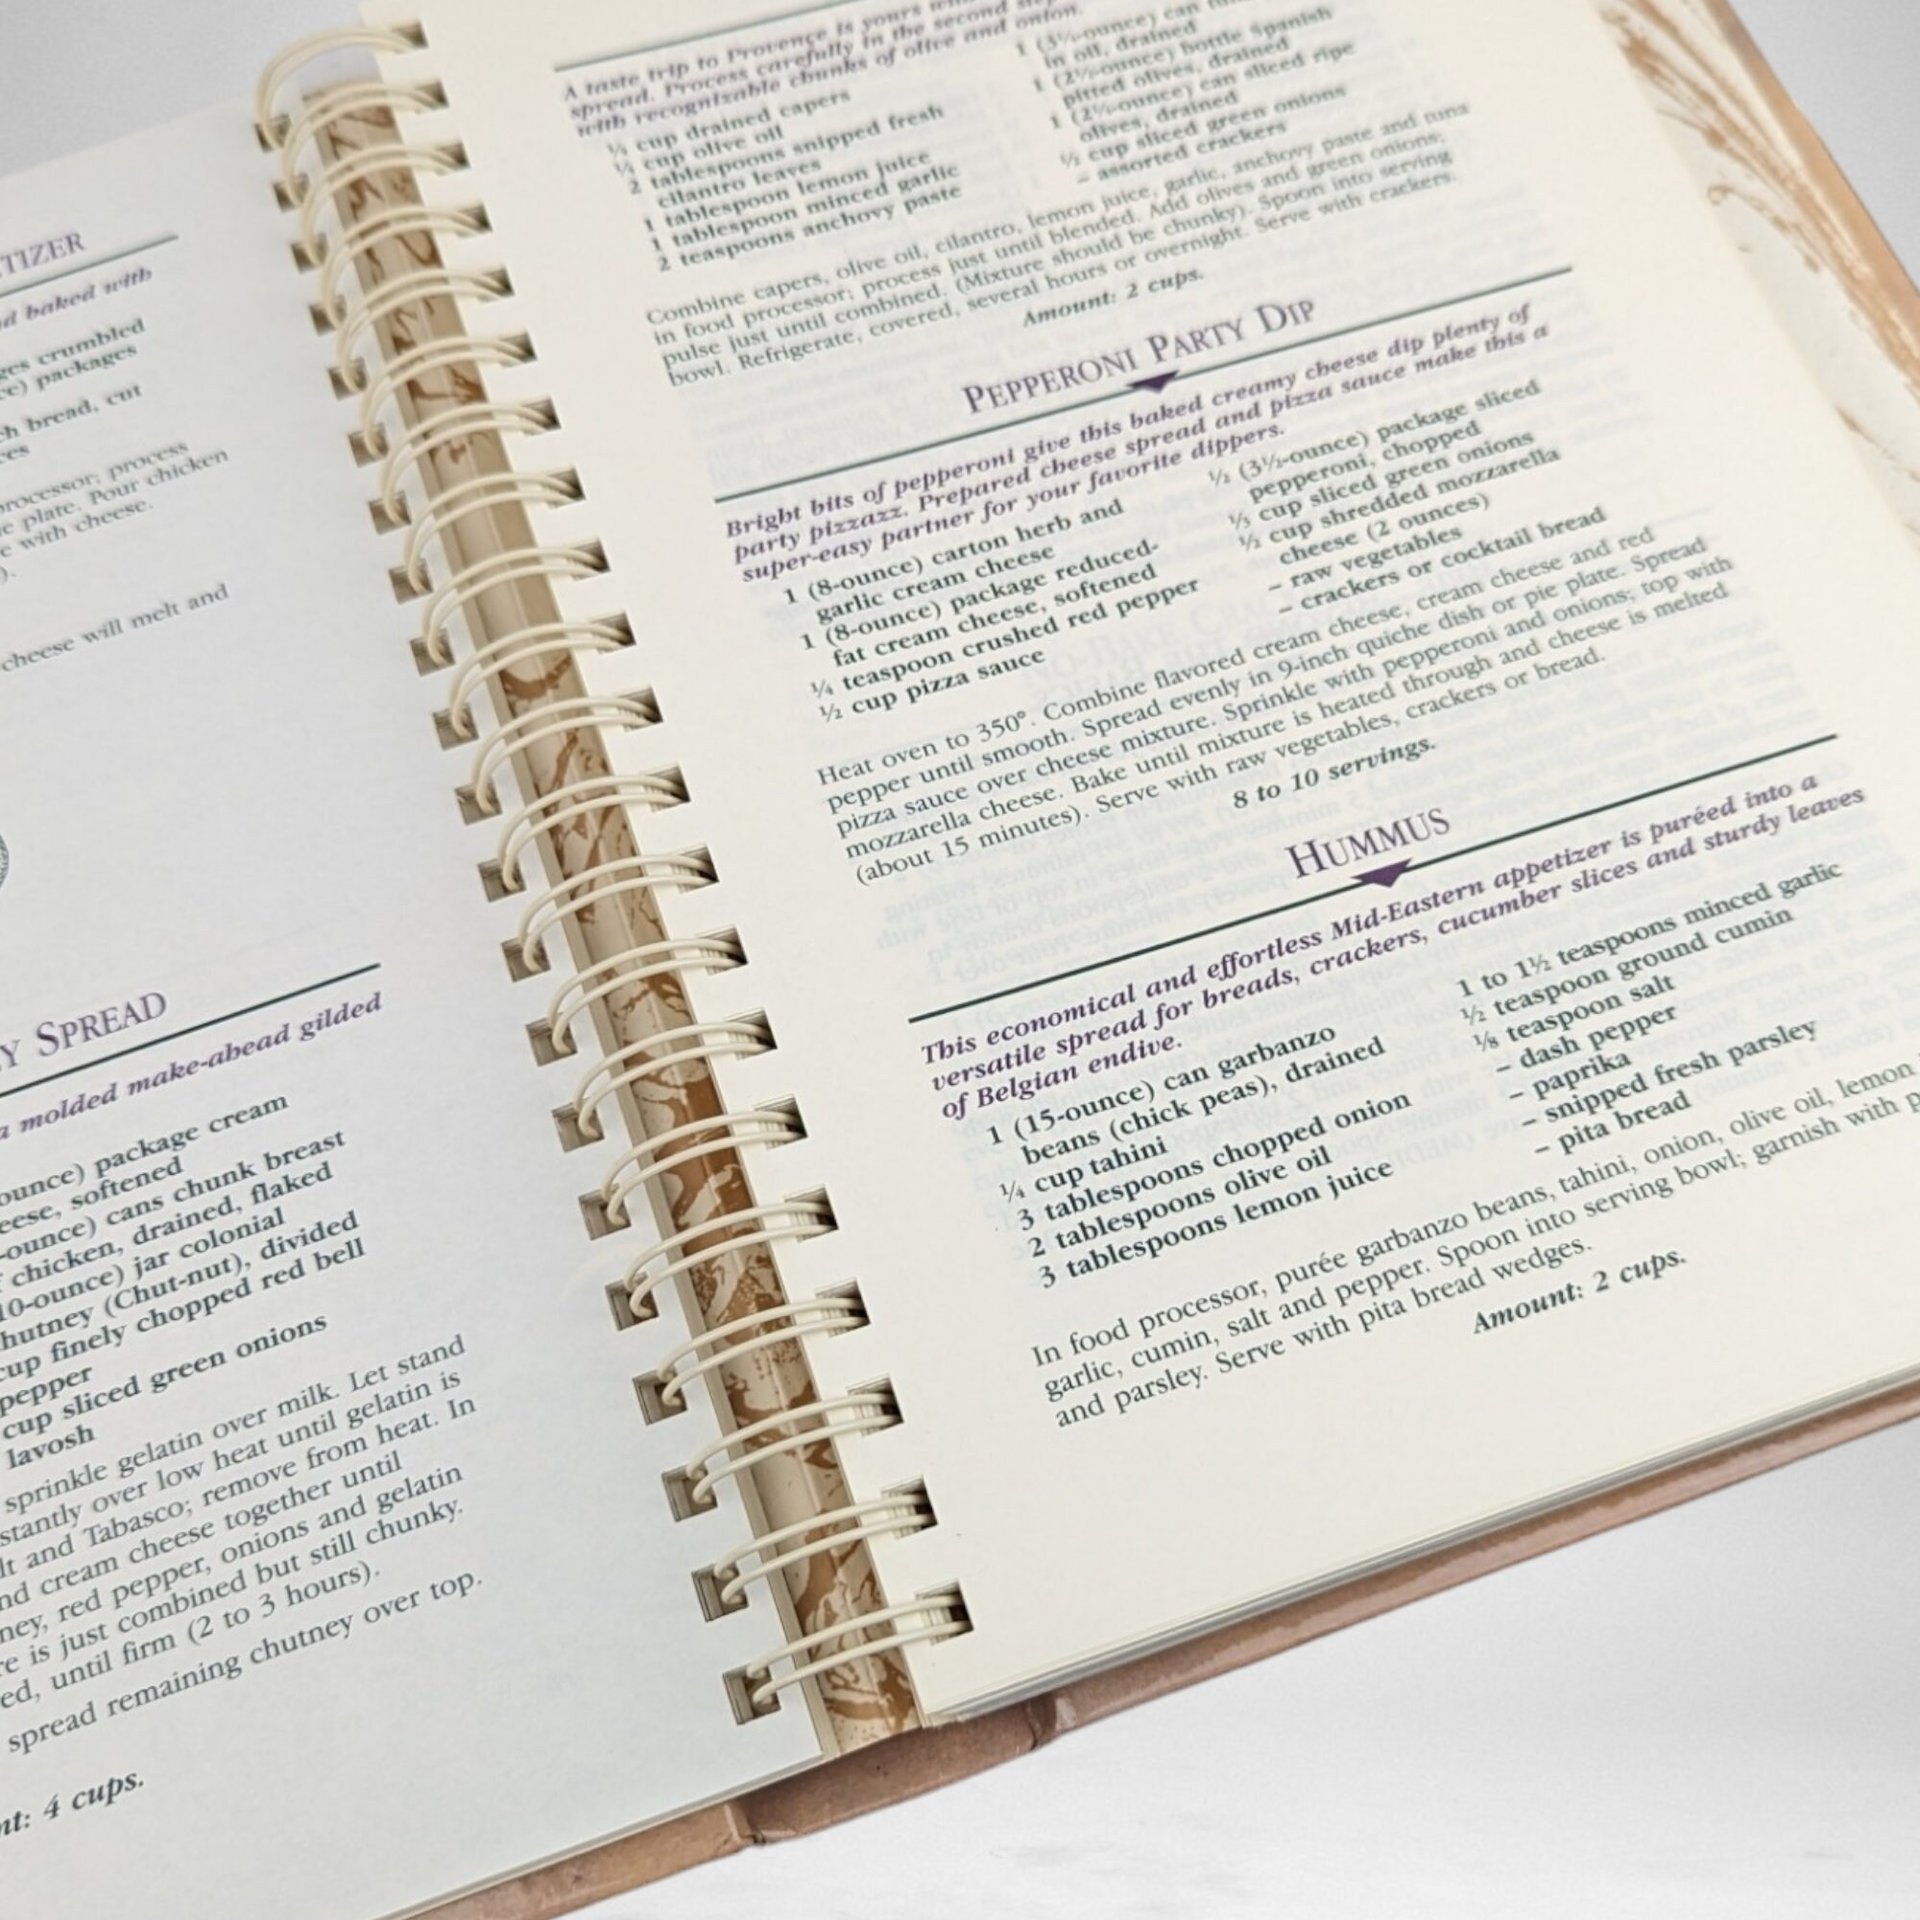 TIZER
d baked with
ges crumbled
ce) packages
h bread, cut
ces
rocessor; process
e plate. Pour chicken
e with cheese.
).
cheese will melt and
Y SPREAD
a molded make-ahead gilded
ounce) package cream
eese, softened
-ounce) cans chunk breast
f chicken, drained, flaked
10-ounce) jar colonial
hutney (Chut-nut), divided
cup finely chopped red bell
pepper
cup sliced green onions
lavosh
sprinkle gelatin over milk. Let stand
stantly over low heat until gelatin is
lt and Tabasco; remove from heat. In
nd cream cheese together until
ney, red pepper, onions and gelatin
re is just combined but still chunky.
ed, until firm (2 to 3 hours).
spread remaining chutney over top.
nt: 4 cups.
A taste trip to Provence is yours
spread. Process carefully in the second
with recognizable chunks of olive and onion.
¼ cup drained capers
¼ cup olive oil
2 tablespoons snipped fresh
cilantro leaves
1 tablespoon lemon juice
1 tablespoon minced garlic
2 teaspoons anchovy paste
1 (3½-ounce) can
in oil, drained
1 (2½-ounce) bottle Spanish
pitted olives, drained
1 (2¼-ounce) can sliced ripe
olives, drained
½ cup sliced green onions
– assorted crackers
Combine capers, olive oil, cilantro, lemon juice, garlic, anchovy paste and tuna
in food processor; process just until blended. Add olives and green onions;
pulse just until combined. (Mixture should be chunky). Spoon into serving
bowl. Refrigerate, covered, several hours or overnight. Serve with crackers.
Amount: 2 cups.
PEPPERONI PARTY DIP
Bright bits of pepperoni give this baked creamy cheese dip plenty of
party pizzazz. Prepared cheese spread and pizza sauce make this a
super-easy partner for your favorite dippers.
1 (8-ounce) carton herb and
garlic cream cheese
1 (8-ounce) package reduced-
fat cream cheese, softened
¼ teaspoon crushed red pepper
½ cup pizza sauce
½ (3½-ounce) package sliced
pepperoni, chopped
⅓ cup sliced green onions
½ cup shredded mozzarella
cheese (2 ounces)
– raw vegetables
– crackers or cocktail bread
Heat oven to 350°. Combine flavored cream cheese, cream cheese and red
pepper until smooth. Spread evenly in 9-inch quiche dish or pie plate. Spread
pizza sauce over cheese mixture. Sprinkle with pepperoni and onions; top with
mozzarella cheese. Bake until mixture is heated through and cheese is melted
(about 15 minutes). Serve with raw vegetables, crackers or bread.
8 to 10 servings.
HUMMUS
This economical and effortless Mid-Eastern appetizer is puréed into a
versatile spread for breads, crackers, cucumber slices and sturdy leaves
of Belgian endive.
1 (15-ounce) can garbanzo
beans (chick peas), drained
¼ cup tahini
3 tablespoons chopped onion
2 tablespoons olive oil
3 tablespoons lemon juice
1 to 1½ teaspoons minced garlic
½ teaspoon ground cumin
⅛ teaspoon salt
– dash pepper
– paprika
– snipped fresh parsley
– pita bread
In food processor, purée garbanzo beans, tahini, onion, olive oil, lemon
garlic, cumin, salt and pepper. Spoon into serving bowl; garnish with p
and parsley. Serve with pita bread wedges.
Amount: 2 cups.